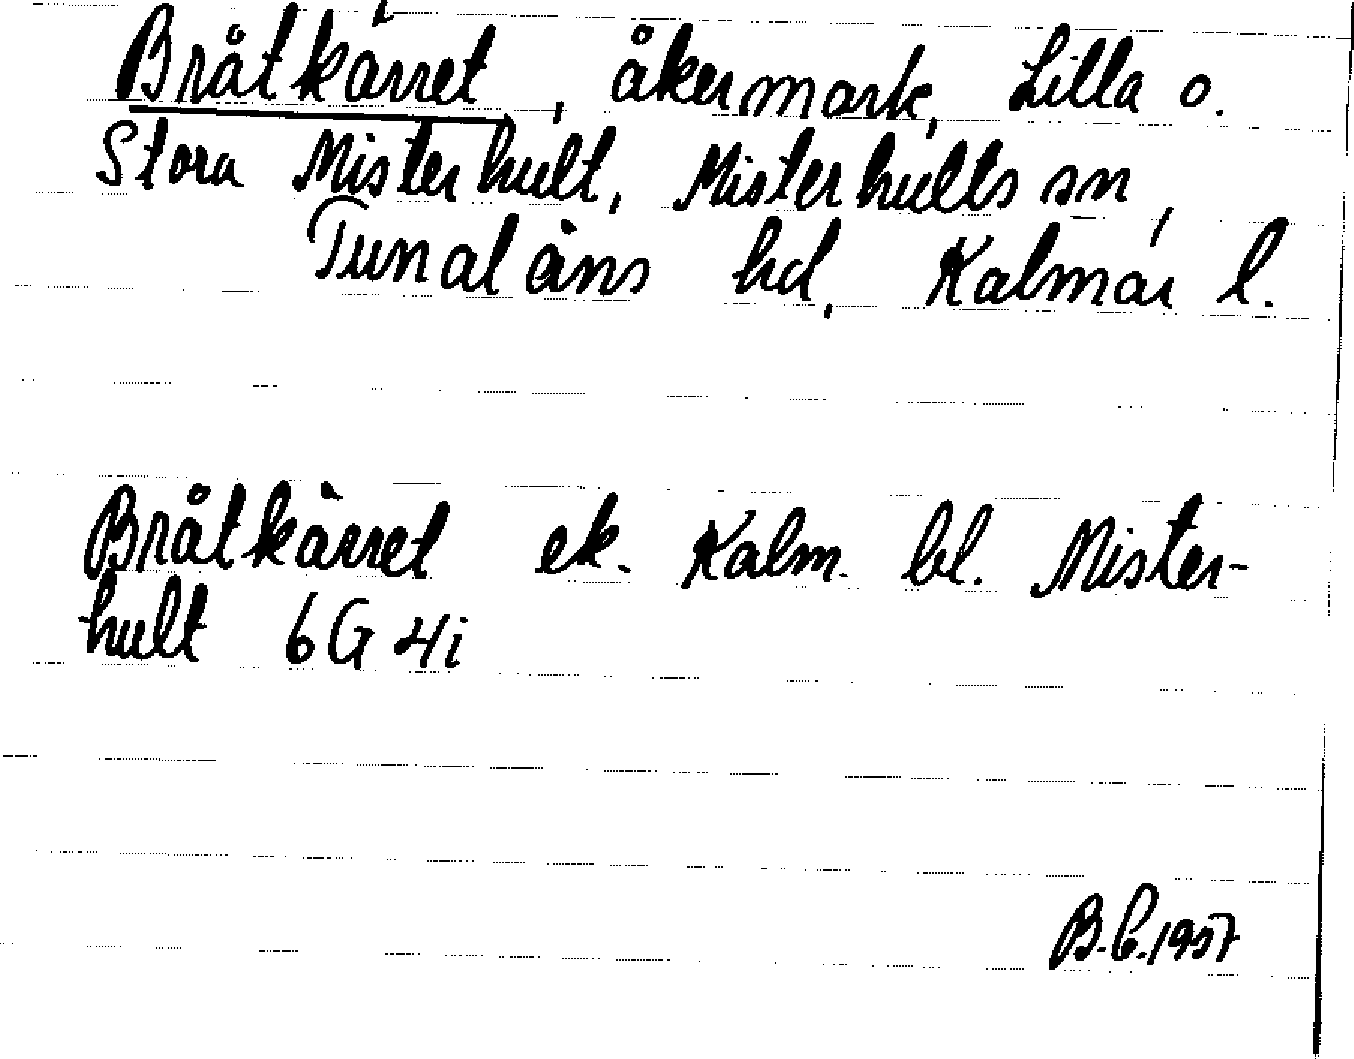 Bråtkärret, åkermark, Lilla o.
Stora Misterhult, Misterhults sn,
Tunaläns hd, Kalmar l.
Bråtkärret ek. Kalm. bl. Mister-
hult 6G 4i
B.C.1957